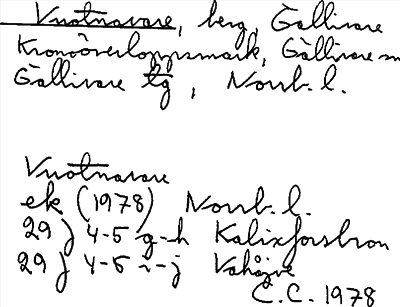 Vuotnavare, berg Gällivare
Kronoöverloppsmark, Gällivare sn
Gällivare tg, Norrb. l.
Vuotnavare
ek (1978) Norrb. l.
29 J 4-5 g-h Kalixforsbron
29 J 4-5 i-j Vahåjve
C.C. 1978